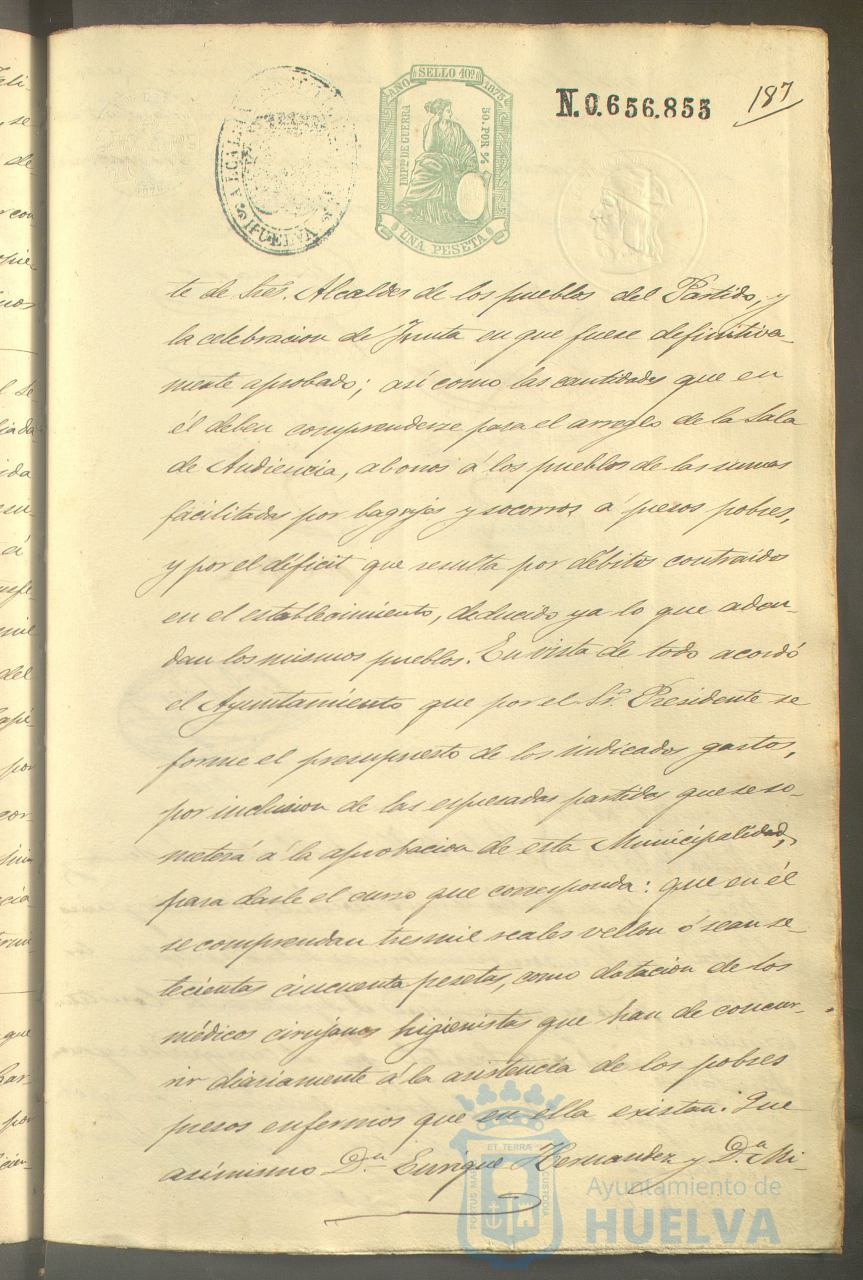 SELLO 10º
AÑO 1875
IMPº DE GUERRA
50 POR %
UNA PESETA
ALCALDIA
HUELVA
N.0.656.855
187
te de Sres. Alcaldes de los pueblos del Partido, y
la celebracion de Junta en que fuese definitiva-
mente aprobado; así como las cantidades que en
él deben comprenderse para el arreglo de la Sala
de Audiencia, abonos á los pueblos de las sumas
facilitadas por bagajes y socorros á presos pobres,
y por el déficit que resulta por débitos contraidos
en el establecimiento, deducido ya lo que adeu-
dan los mismos pueblos. En vista de todo acordó
el Ayuntamiento que por el Sr. Presidente se
forme el presupuesto de los indicados gastos,
por inclusion de las espresadas partidas que se so-
meterá á la aprobacion de esta Municipalidad,
para darle el curso que corresponda: que en él
se comprendan tres mil reales vellon ó sean se-
tecientas cincuenta pesetas, como dotacion de los
médicos cirujanos higienistas que han de concur-
rir diariamente á la asistencia de los pobres
presos enfermos que en ella existan: Que
asimismo D.n Enrique Hernandez y D.n Mi-
PORTUS MARIS ET TERRAE CUSTODIA
Ayuntamiento de
HUELVA